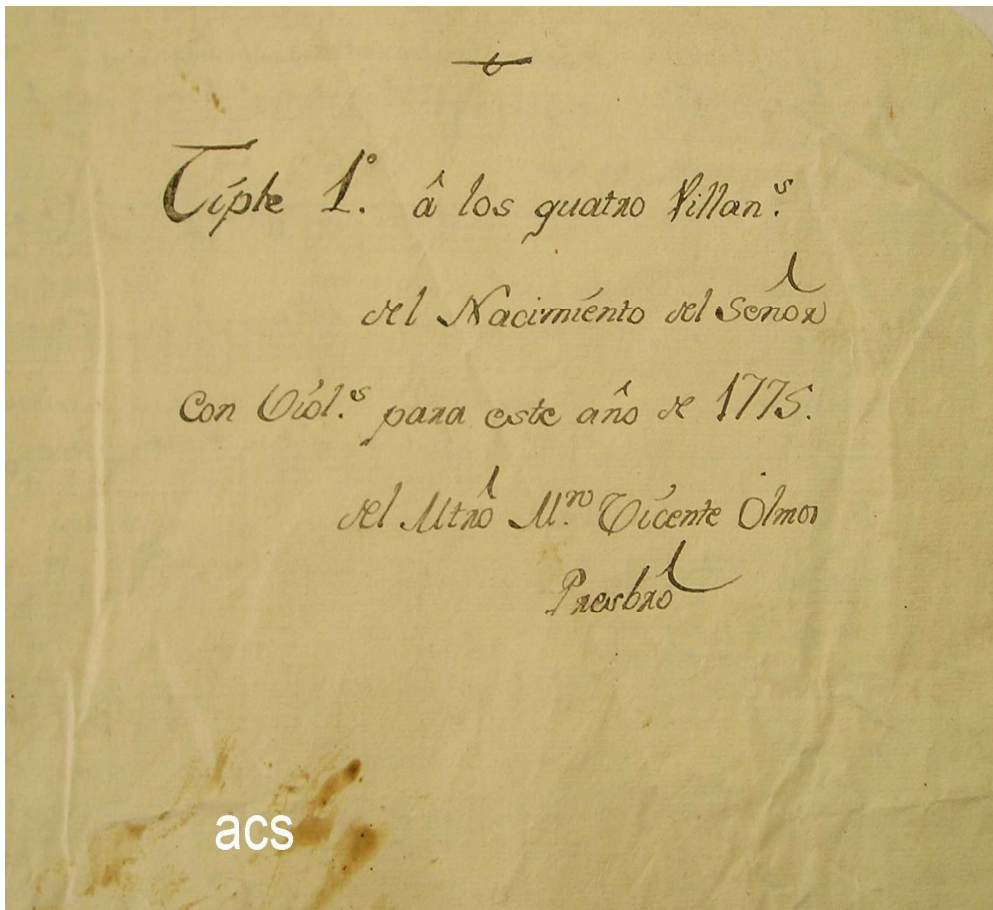 Tiple 1.º â los quatro Villan.s
del Nacimiento del Señor
Con Viol.s para este año de 1775.
del Mtrô M.n Vicente Olmos
Presbrô
acs